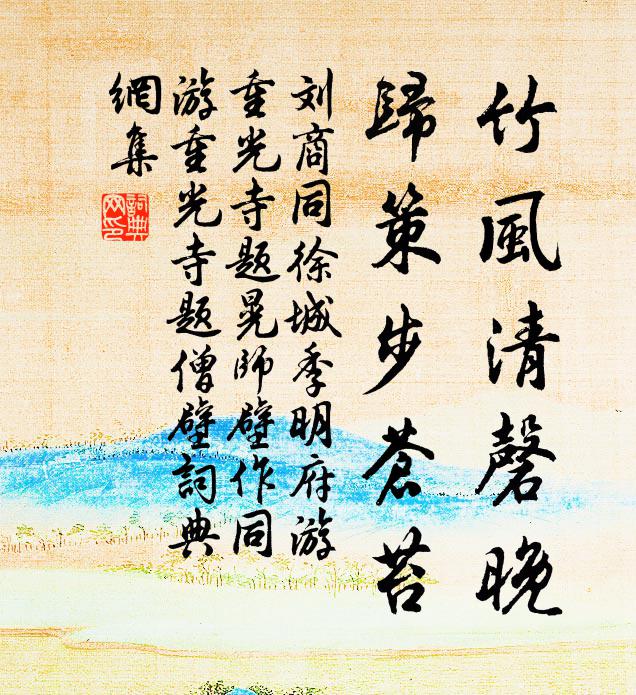 竹風清磬晚
歸策步蒼苔
刘商同徐城季明府游
重光寺题晃師壁作同
游重光寺题僧壁詞典
網集
詞典網印